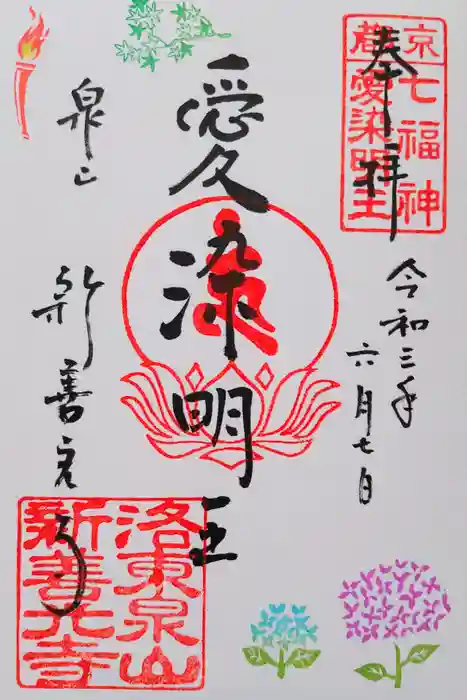 奉拝
京都七福神
愛染明王
令和三年
六月七日
愛染明王
泉山
新善光寺
洛東泉山
新善光寺